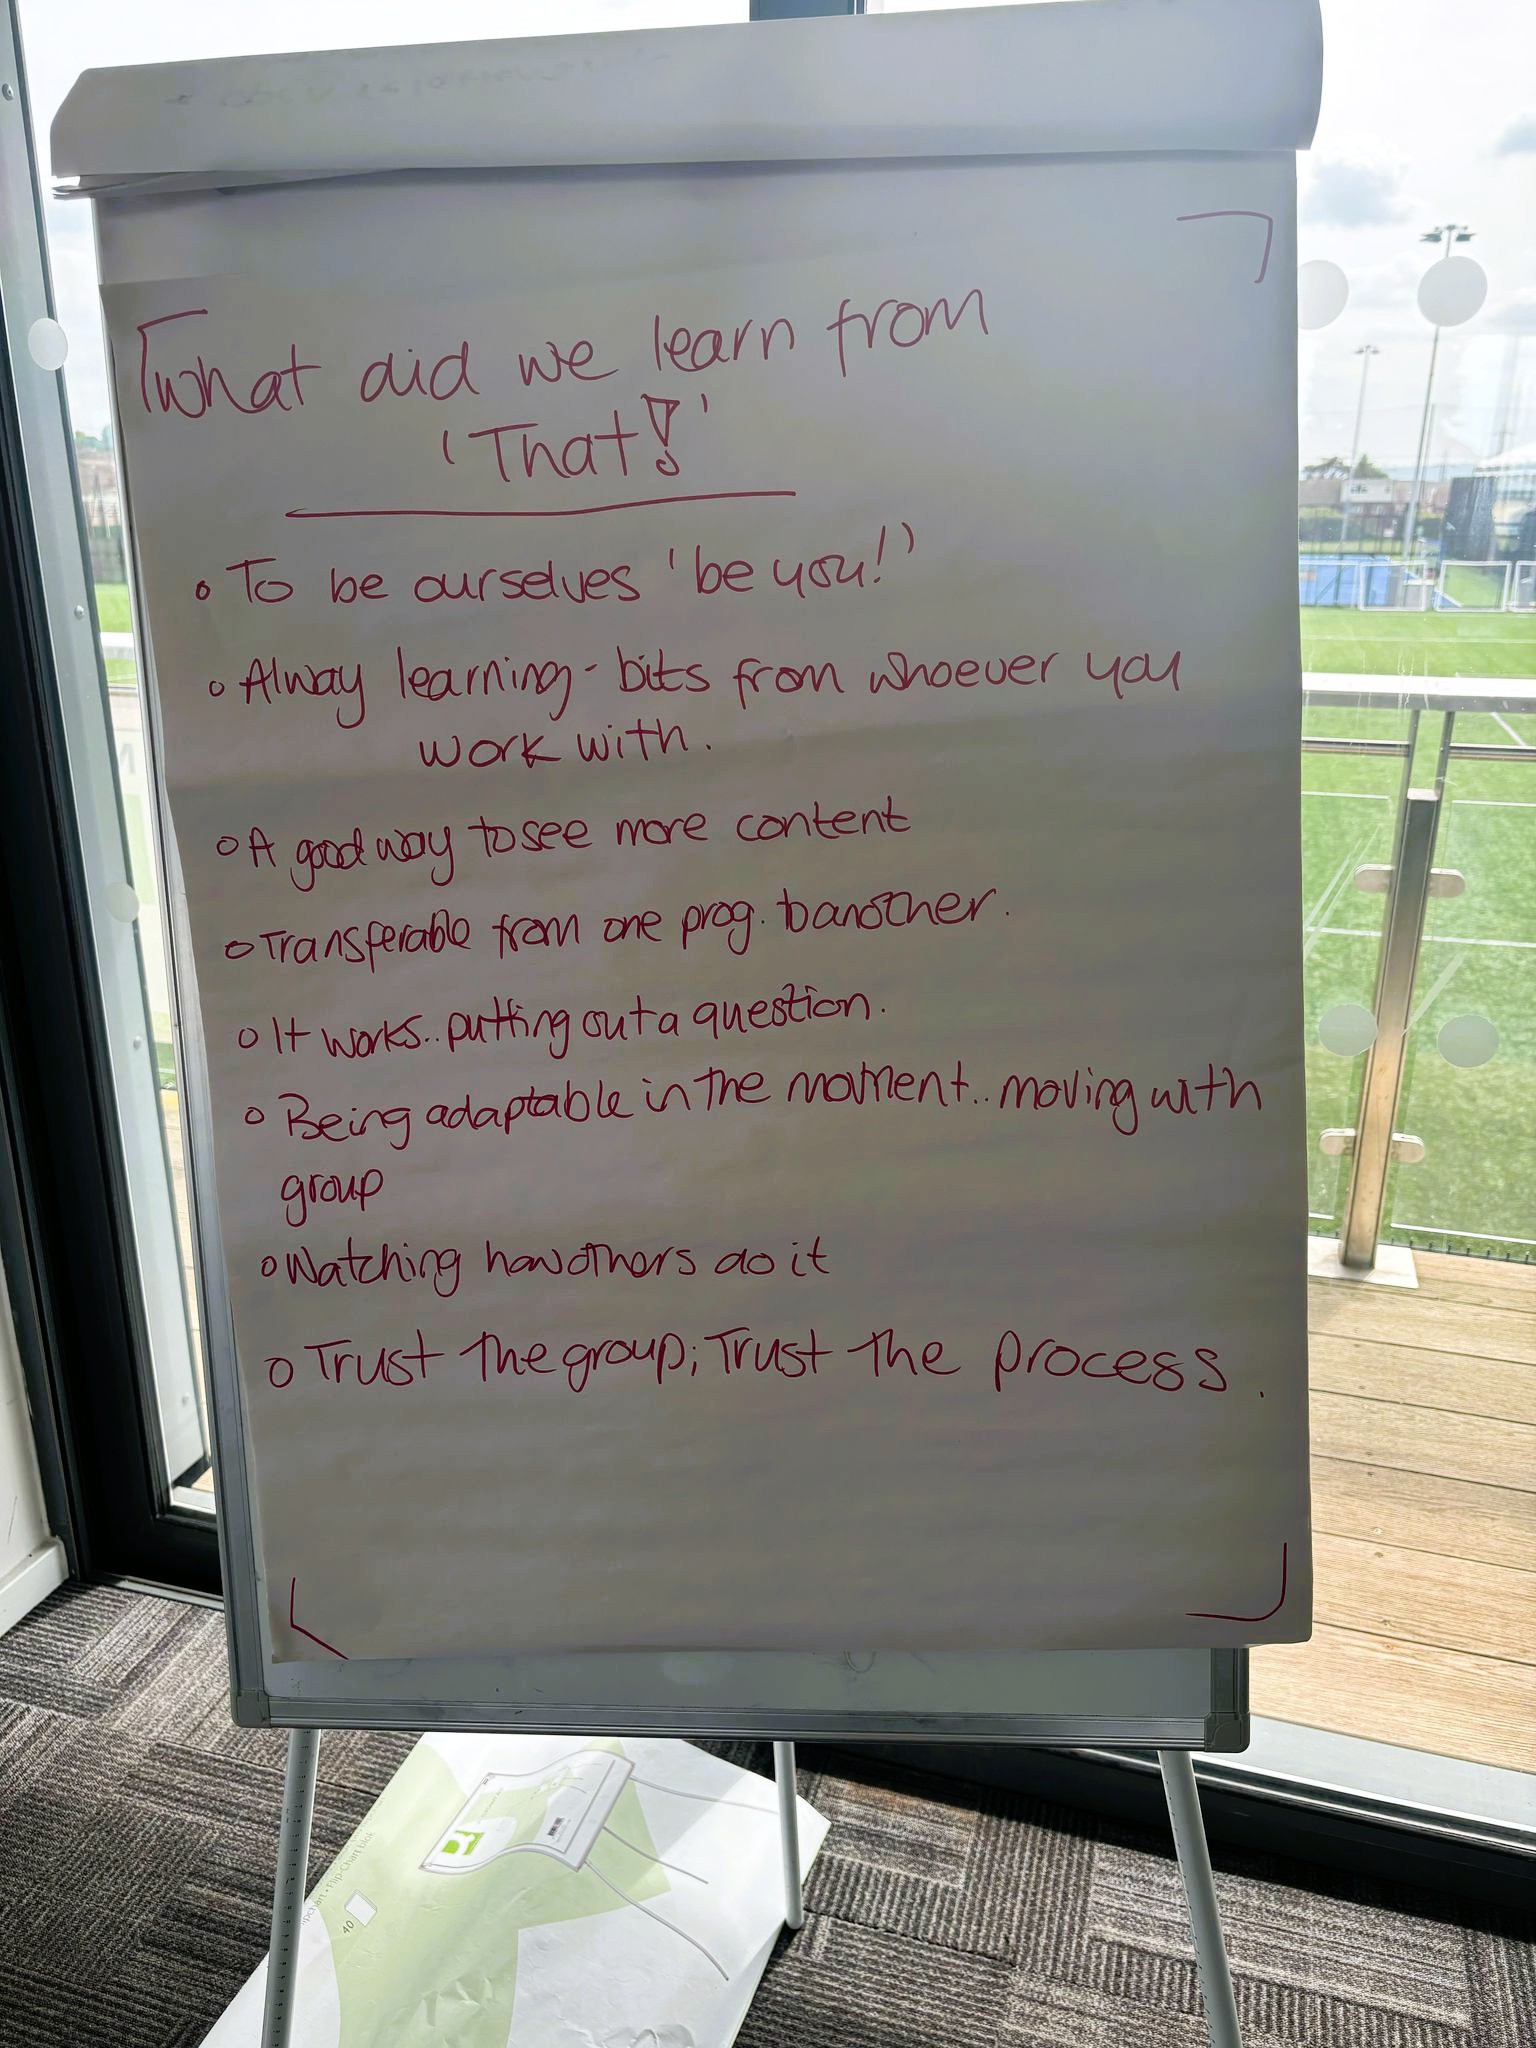 What did we learn from
'That!'
• To be ourselves 'be you!'
• Alway learning - bits from whoever you
work with.
• A good way to see more content
• Transferable from one prog. to another.
• It works.. putting out a question.
• Being adaptable in the moment.. moving with
group
• Watching how others do it
• Trust the group; Trust the process.
Flip-Chart blok
40